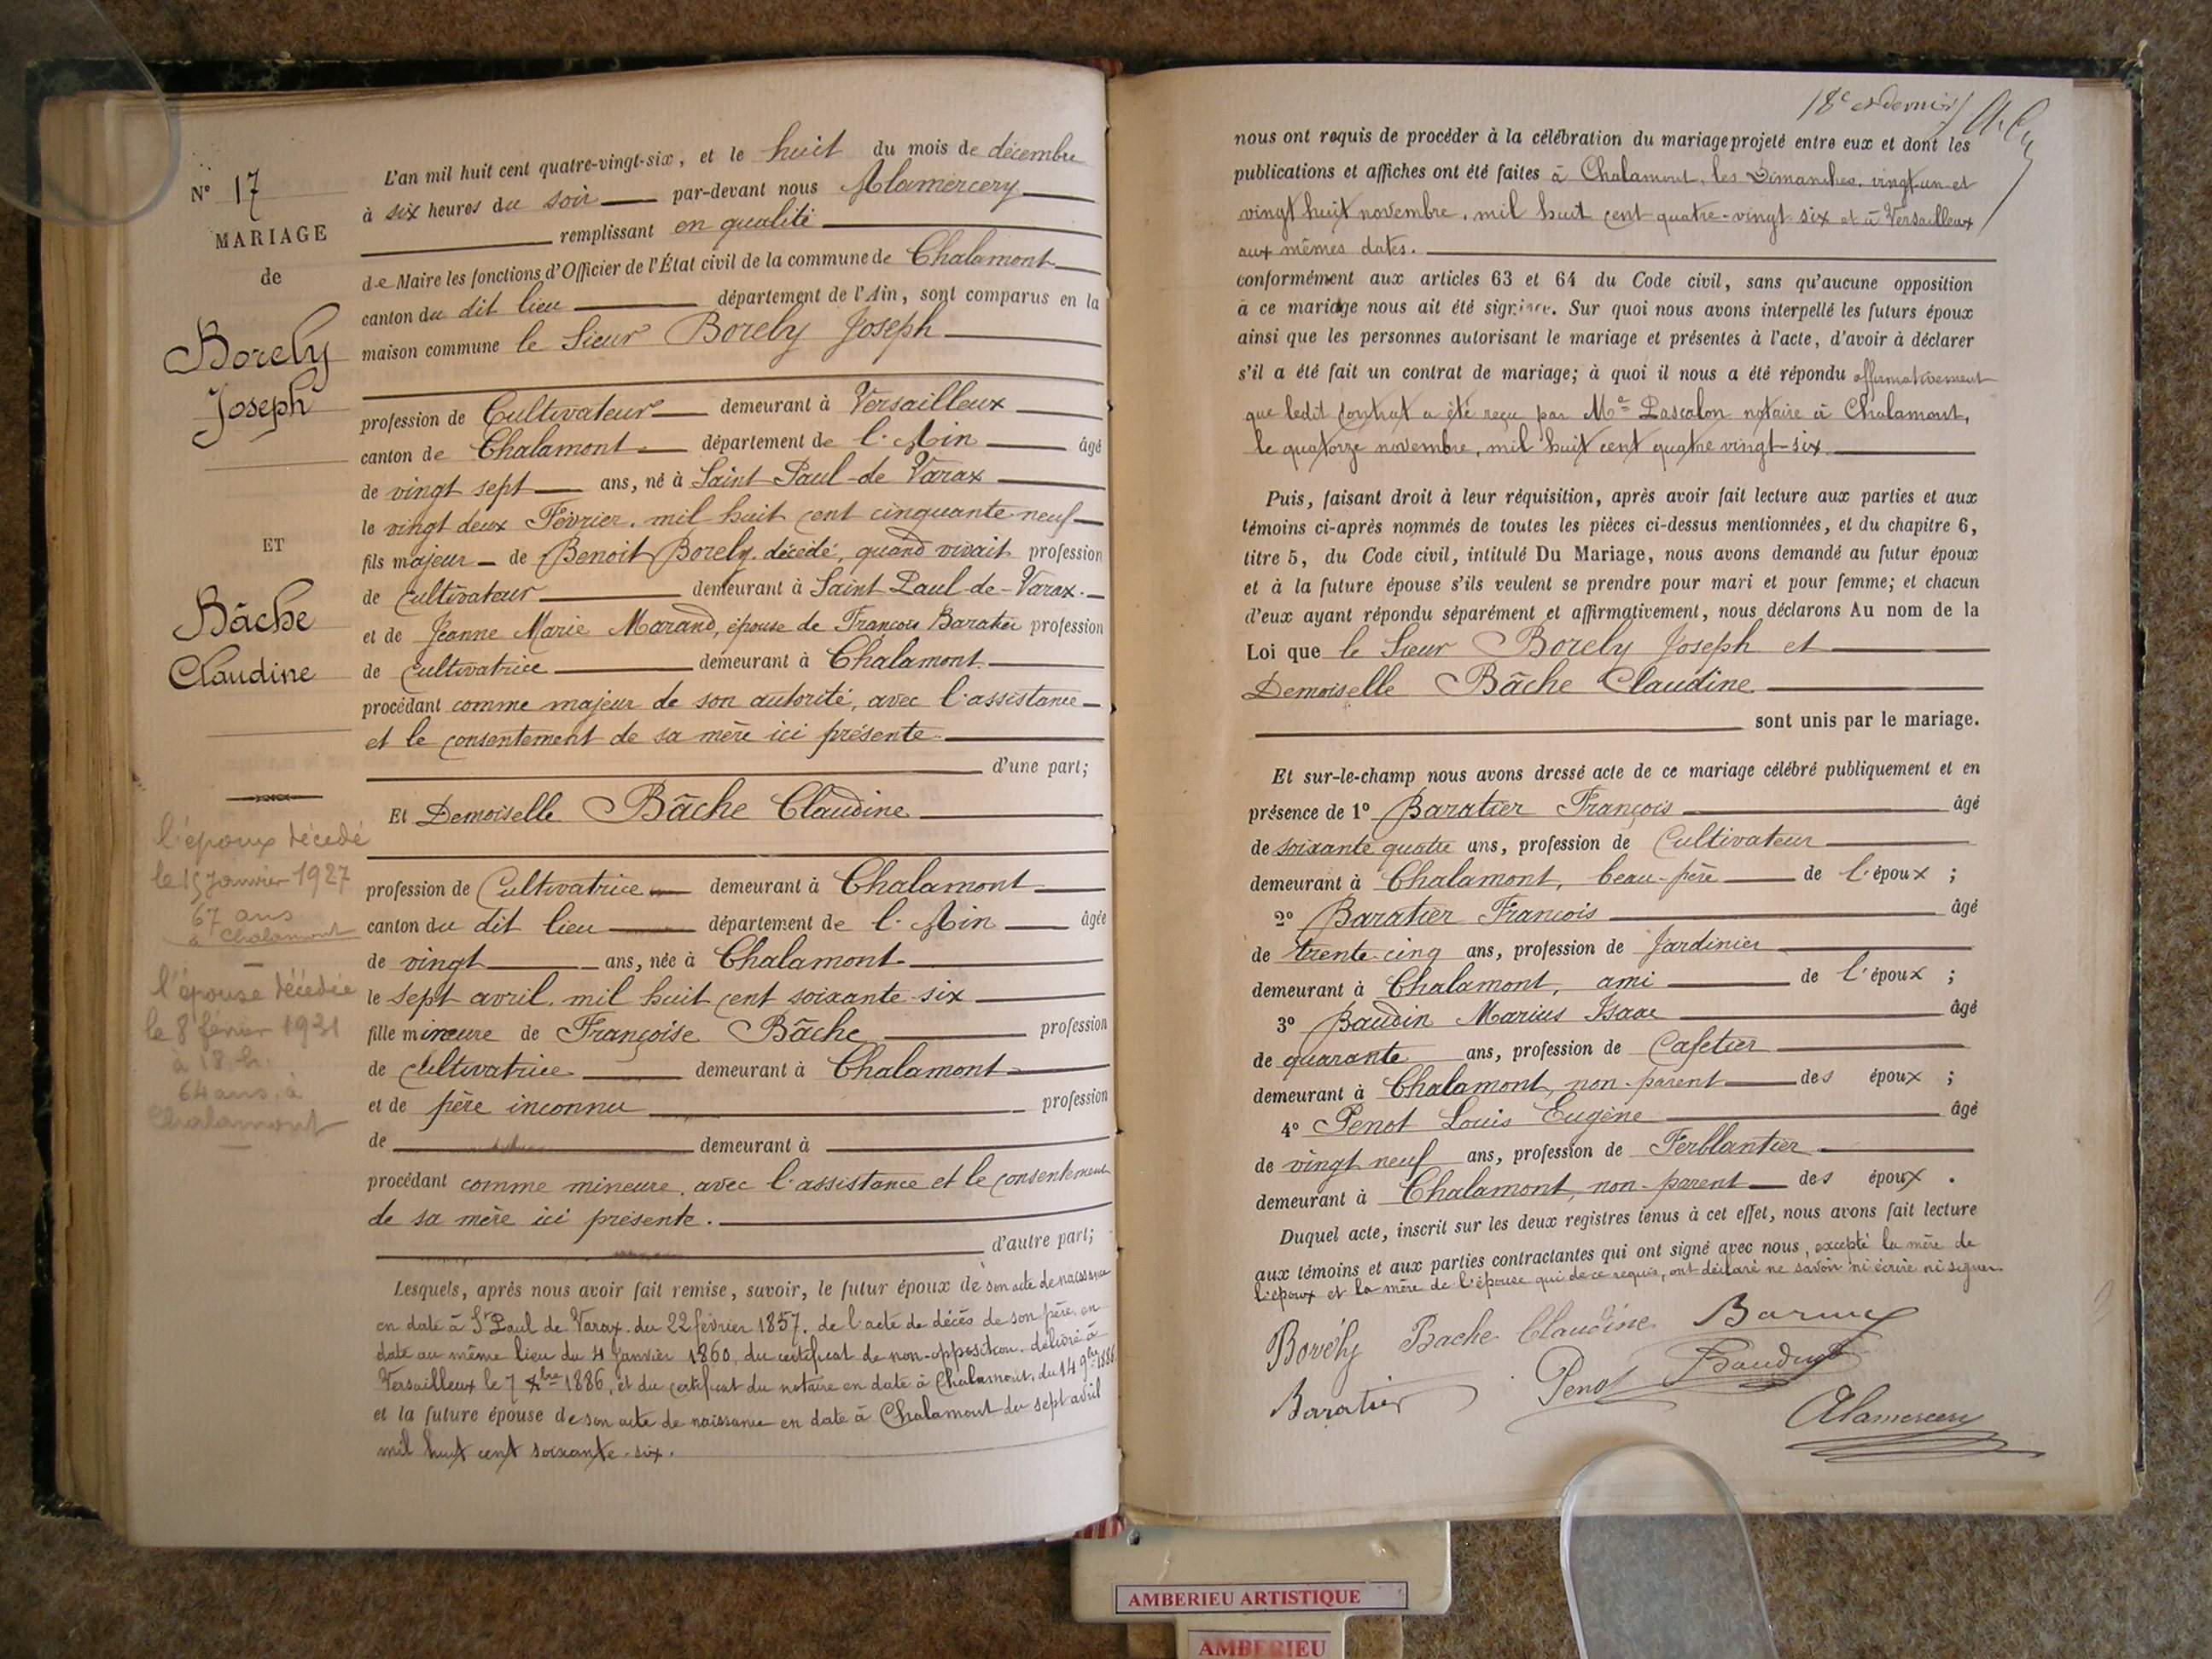 N° 17
MARIAGE
de
Borely
Joseph
ET
Bâche
Claudine
l'époux décédé
le 15 Janvier 1927
67 ans
à Chalamont
l'épouse décédée
le 8 février 1931
à 18 h.
64 ans, à
Chalamont
L'an mil huit cent quatre-vingt-six, et le huit du mois de décembre
à six heures du soir par-devant nous Alamercery
remplissant en qualité
de Maire les fonctions d'Officier de l'État civil de la commune de Chalamont
canton du dit lieu département de l'Ain, sont comparus en la
maison commune le Sieur Borely Joseph
profession de Cultivateur demeurant à Versailleux
canton de Chalamont département de l'Ain âgé
de vingt sept ans, né à Saint Paul-de Varax
le vingt deux Février, mil huit cent cinquante neuf
fils majeur de Benoit Borely, décédé, quand vivait profession
de cultivateur demeurant à Saint-Paul-de-Varax.
et de Jeanne Marie Morand, épouse de François Baratier profession
de cultivatrice demeurant à Chalamont
procédant comme majeur de son autorité, avec l'assistance
et le consentement de sa mère ici présente.
d'une part;
Et Demoiselle Bâche Claudine
profession de Cultivatrice demeurant à Chalamont
canton du dit lieu département de l'Ain âgée
de vingt ans, née à Chalamont
le sept avril, mil huit cent soixante-six
fille mineure de Françoise Bâche profession
de cultivatrice demeurant à Chalamont
et de père inconnu profession
de demeurant à
procédant comme mineure, avec l'assistance et le consentement
de sa mère ici présente.
d'autre part;
Lesquels, après nous avoir fait remise, savoir, le futur époux de son acte de naissance
en date à St Paul de Varax du 22 février 1857, de l'acte de décès de son père, en
date au même lieu du 4 Janvier 1860, du certificat de non-opposition, délivré à
Versailleux le 7 Xbre 1886, et du certificat du notaire en date à Chalamont, du 14 9bre 1886
et la future épouse de son acte de naissance en date à Chalamont du sept avril
mil huit cent soixante-six.
18e et dernier
nous ont requis de procéder à la célébration du mariage projeté entre eux et dont les
publications et affiches ont été faites à Chalamont, les Dimanches, vingt-un et
vingt huit novembre, mil huit cent quatre-vingt six et à Versailleux
aux mêmes dates.
conformément aux articles 63 et 64 du Code civil, sans qu'aucune opposition
à ce mariage nous ait été signifiée. Sur quoi nous avons interpellé les futurs époux
ainsi que les personnes autorisant le mariage et présentes à l'acte, d'avoir à déclarer
s'il a été fait un contrat de mariage; à quoi il nous a été répondu affirmativement
que ledit contrat a été reçu par Me Pascalon notaire à Chalamont,
le quatorze novembre, mil huit cent quatre vingt-six
Puis, faisant droit à leur réquisition, après avoir fait lecture aux parties et aux
témoins ci-après nommés de toutes les pièces ci-dessus mentionnées, et du chapitre 6,
titre 5, du Code civil, intitulé Du Mariage, nous avons demandé au futur époux
et à la future épouse s'ils veulent se prendre pour mari et pour femme; et chacun
d'eux ayant répondu séparément et affirmativement, nous déclarons Au nom de la
Loi que le Sieur Borely Joseph et
Demoiselle Bâche Claudine
sont unis par le mariage.
Et sur-le-champ nous avons dressé acte de ce mariage célébré publiquement et en
présence de 1° Baratier François âgé
de soixante quatre ans, profession de Cultivateur
demeurant à Chalamont, beau-père de l'époux ;
2° Baratier François âgé
de trente-cinq ans, profession de Jardinier
demeurant à Chalamont, ami de l'époux ;
3° Baudin Marius Isaac âgé
de quarante ans, profession de Cafetier
demeurant à Chalamont, non-parent des époux ;
4° Penot Louis Eugène âgé
de vingt neuf ans, profession de Ferblantier
demeurant à Chalamont, non-parent des époux .
Duquel acte, inscrit sur les deux registres tenus à cet effet, nous avons fait lecture
aux témoins et aux parties contractantes qui ont signé avec nous, excepté la mère de
l'époux et la mère de l'épouse qui de ce requis, ont déclaré ne savoir ni écrire ni signer.
Borély Bache Claudine
Baratier Penot Baudin
Alamercery
AMBERIEU ARTISTIQUE
AMBERIEU